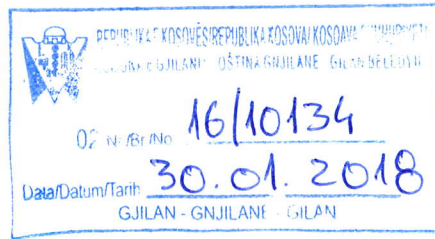 REPUBLIKA E KOSOVËS/REPUBLIKA KOSOVA/KOSOVA
GJILANIT OPŠTINA GNJILANE GILAN
02 Nr/Br/No 16/10134
Data/Datum/Tarih 30.01.2018
GJILAN - GNJILANE - GILAN